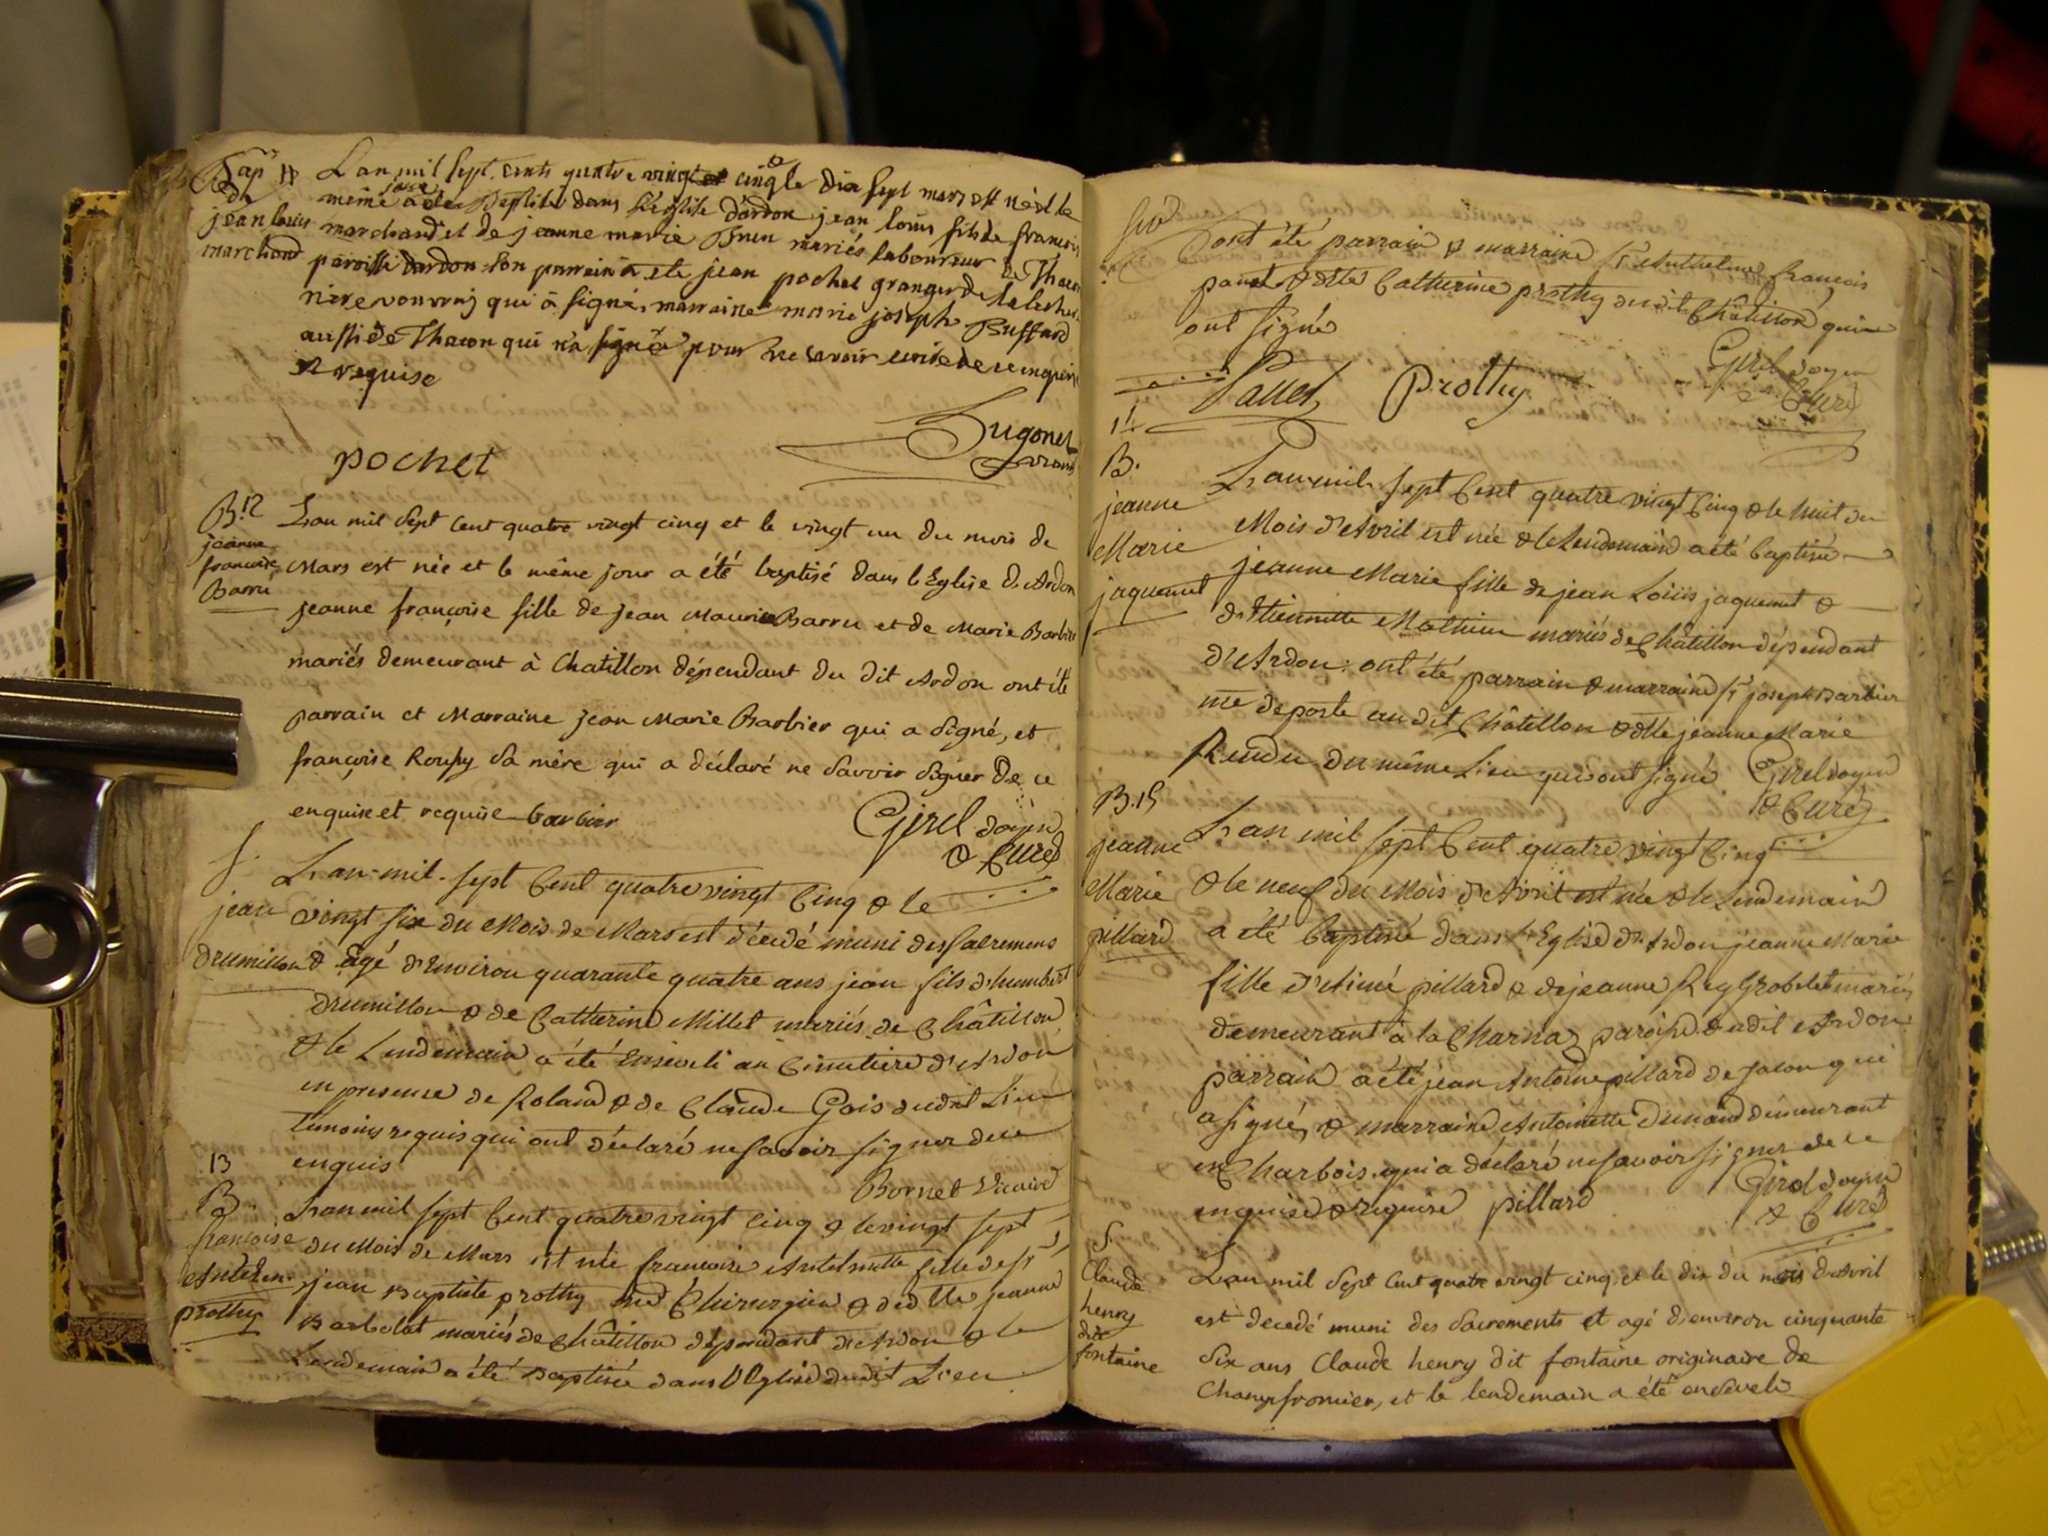 Bap 11
de
jean louis
marchand
L'an mil sept cents quatre vingt cinq le dix sept mars est né et le
même jour a été Baptisé dans l'église d'ardon jean louis fils de françois
marchand et de jeanne marie Brun mariés laboureur de Thacon
paroisse dardon son parrain a ete jean pochet granger de la
vouvray qui à signé, marraine marie joseph Buffard
aussi de Thacon qui n'a signé pour ne savoir ecrire de ce enquise
et requise
pochet
Hugonet
vicaire
B. 12
jeanne
francoise
Barru
L'an mil sept cent quatre vingt cinq et le vingt un du mois de
Mars est née et le même jour a été baptisé dans l'Eglise d'Ardon
jeanne françoise fille de jean Maurice Barru et de Marie Barbier
mariés demeurant à Chatillon dépendant du dit Ardon ont été
parrain et Marraine jean Marie Barbier qui a signé, et
françoise Rouphy sa mére qui a déclaré ne savoir signer de ce
enquise et requise barbier
Girel doyen
& Curé
S.
jean
drumillon
L'an mil sept Cent quatre vingt Cinq & le
vingt six du Mois de Mars est décedé muni des sacremens
& âgé d'Environ quarante quatre ans jean fils d'humbert
drumillon & de Catherine Millet mariés de Châtillon
& le Lendemain a été Enseveli au Cimetiere d'Ardon
en presence de Roland & de Claude Gois dudit Lieu
temoins requis qui ont déclaré ne savoir signer de ce
enquis
Bornet Vicaire
13
B
françoise
Antelm.
prothy
L'an mil sept Cent quatre vingt Cinq & le vingt sept
du Mois de Mars est née francoise Antelmette fille de sr
jean Baptiste prothy me Chirurgien & de dlle jeanne
Barbolat mariés de Châtillon dépendant d'Ardon & le
Lendemain a été Baptisée dans l'Eglise dudit Lieu
sont été parrain & marraine sr Anthelme françois
panet & dlle Catherine prothy dudit Châtillon qui
ont signé
Passet
Prothy
Girel doyen
& Curé
14
B.
jeanne
Marie
jaquemet
L'an mil sept Cent quatre vingt Cinq & le huit du
Mois d'Avril est née & le Lendemain a été baptisée
jeanne Marie fille de jean Loüis jaquemet &
d'Etiennette Mathieu mariés de Châtillon dépendant
d'Ardon. ont été parrain & marraine sr joseph Barbier
me de poste audit Châtillon & dlle jeanne Marie
Rendu du même Lieu qui ont signé
Girel doyen
& Curé
B. 15
jeanne
Marie
pillard
L'an mil sept Cent quatre vingt Cinq
& le neuf du Mois d'Avril est née & le Lendemain
a été baptisée dans l'Eglise d'Ardon jeanne Marie
fille d'Aimé pillard & de jeanne Rey Grobelet mariés
demeurant à la Charnaz paroisse dudit Ardon
parrain a été jean Antoine pillard de Jacon qui
a signé, & marraine Antoinette Dunand demeurant
en Charbois qui a déclaré ne savoir signer de ce
enquise & requise pillard
Girel doyen
& Curé
S.
Claude
henry
dit
fontaine
L'an mil sept Cent quatre vingt cinq et le dix du mois d'Avril
est decedé muni des sacrements et agé d'environ cinquante
six ans Claude henry dit fontaine originaire de
Champfromier, et le lendemain a été enseveli